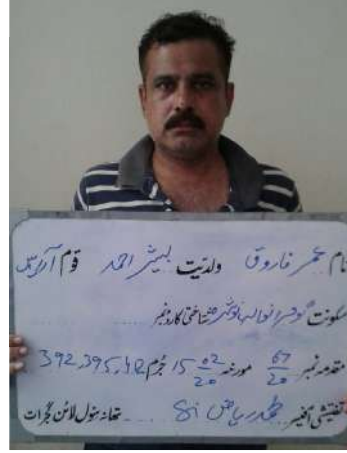 نام عمر فاروق ولدیت بشیر احمد قوم آرائیں
سکونت گوجرانوالہ شناختی کارڈ نمبر
مقدمہ نمبر 67/20 مورخہ 15/02/20 جرم 392,395,412
تفتیشی آفیسر محمد ریاض Si تھانہ سول لائن گجرات